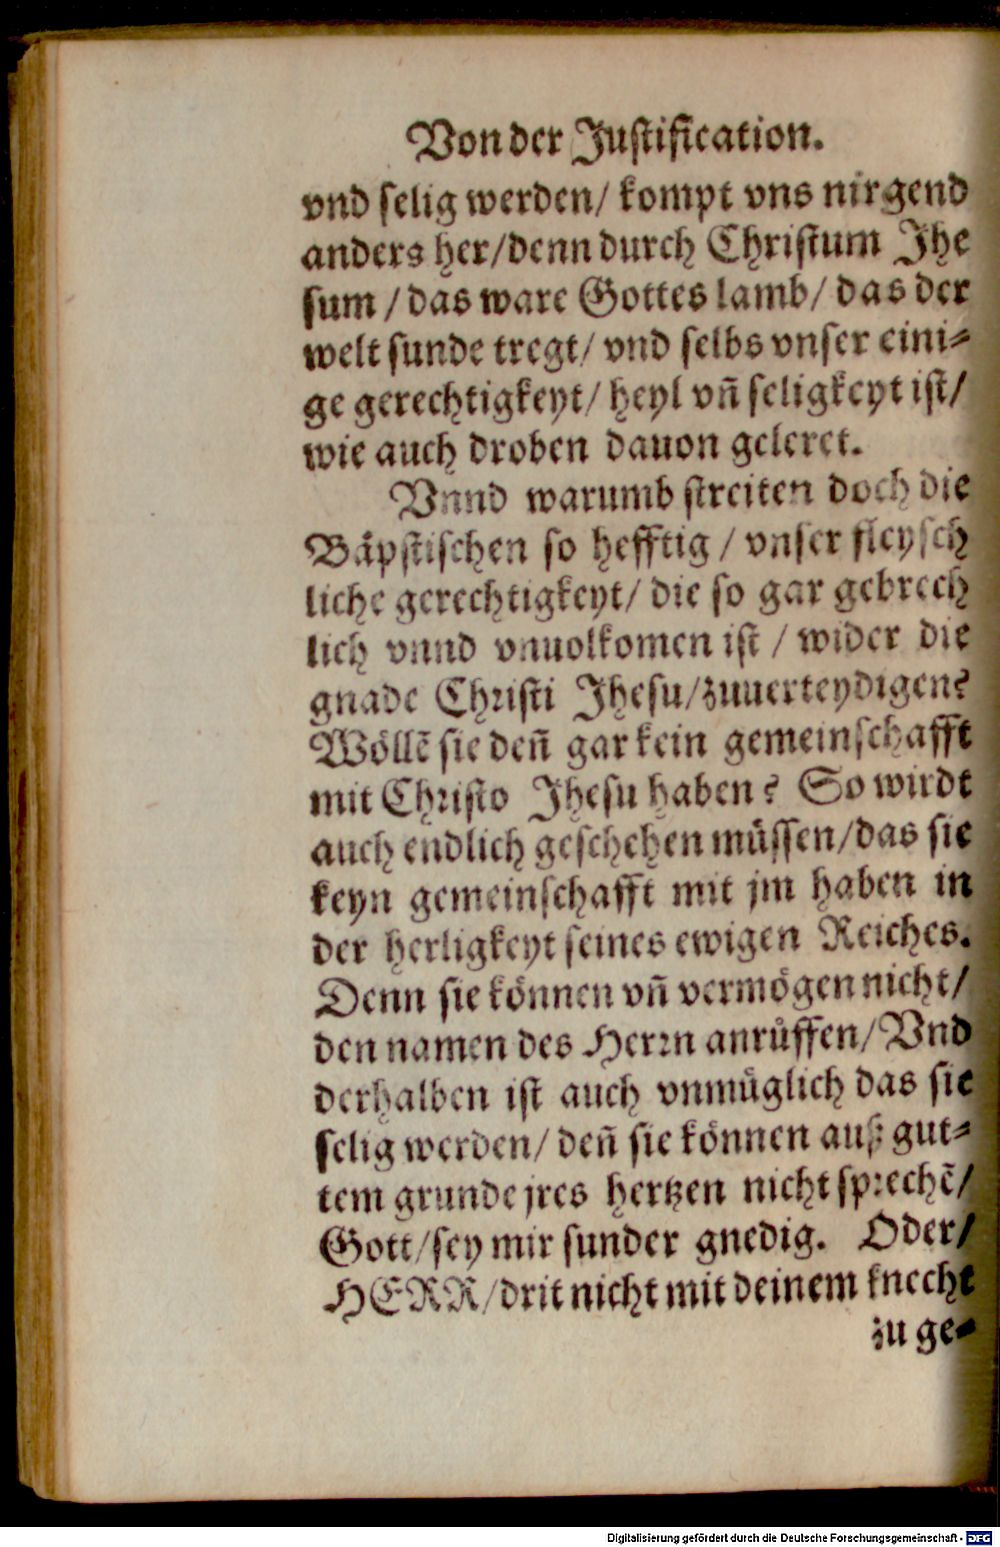 Von der Justification.
vnd selig werden/ kompt vns nirgend
anders her/denn durch Christum Jhe
sum / das ware Gottes lamb/ das der
welt sunde tregt/ vnd selbs vnser eini-
ge gerechtigkeyt/ heyl vñ seligkeyt ist/
wie auch droben dauon geleret.
Vnnd warumb streiten doch die
Bäpstischen so hefftig / vnser fleysch
liche gerechtigkeyt/ die so gar gebrech
lich vnnd vnuolkomen ist / wider die
gnade Christi Jhesu/zuuerteydigen?
Wöllẽ sie deñ gar kein gemeinschafft
mit Christo Jhesu haben? So wirdt
auch endlich geschehen müssen/das sie
keyn gemeinschafft mit jm haben in
der herligkeyt seines ewigen Reiches.
Denn sie können vñ vermögen nicht/
den namen des Herrn anrůffen/Vnd
derhalben ist auch vnmüglich das sie
selig werden/ deñ sie können auß gut-
tem grunde jres hertzen nicht sprechẽ/
Gott/sey mir sunder gnedig. Oder/
HERR/drit nicht mit deinem knecht
zu ge-
Digitalisierung gefördert durch die Deutsche Forschungsgemeinschaft - DFG